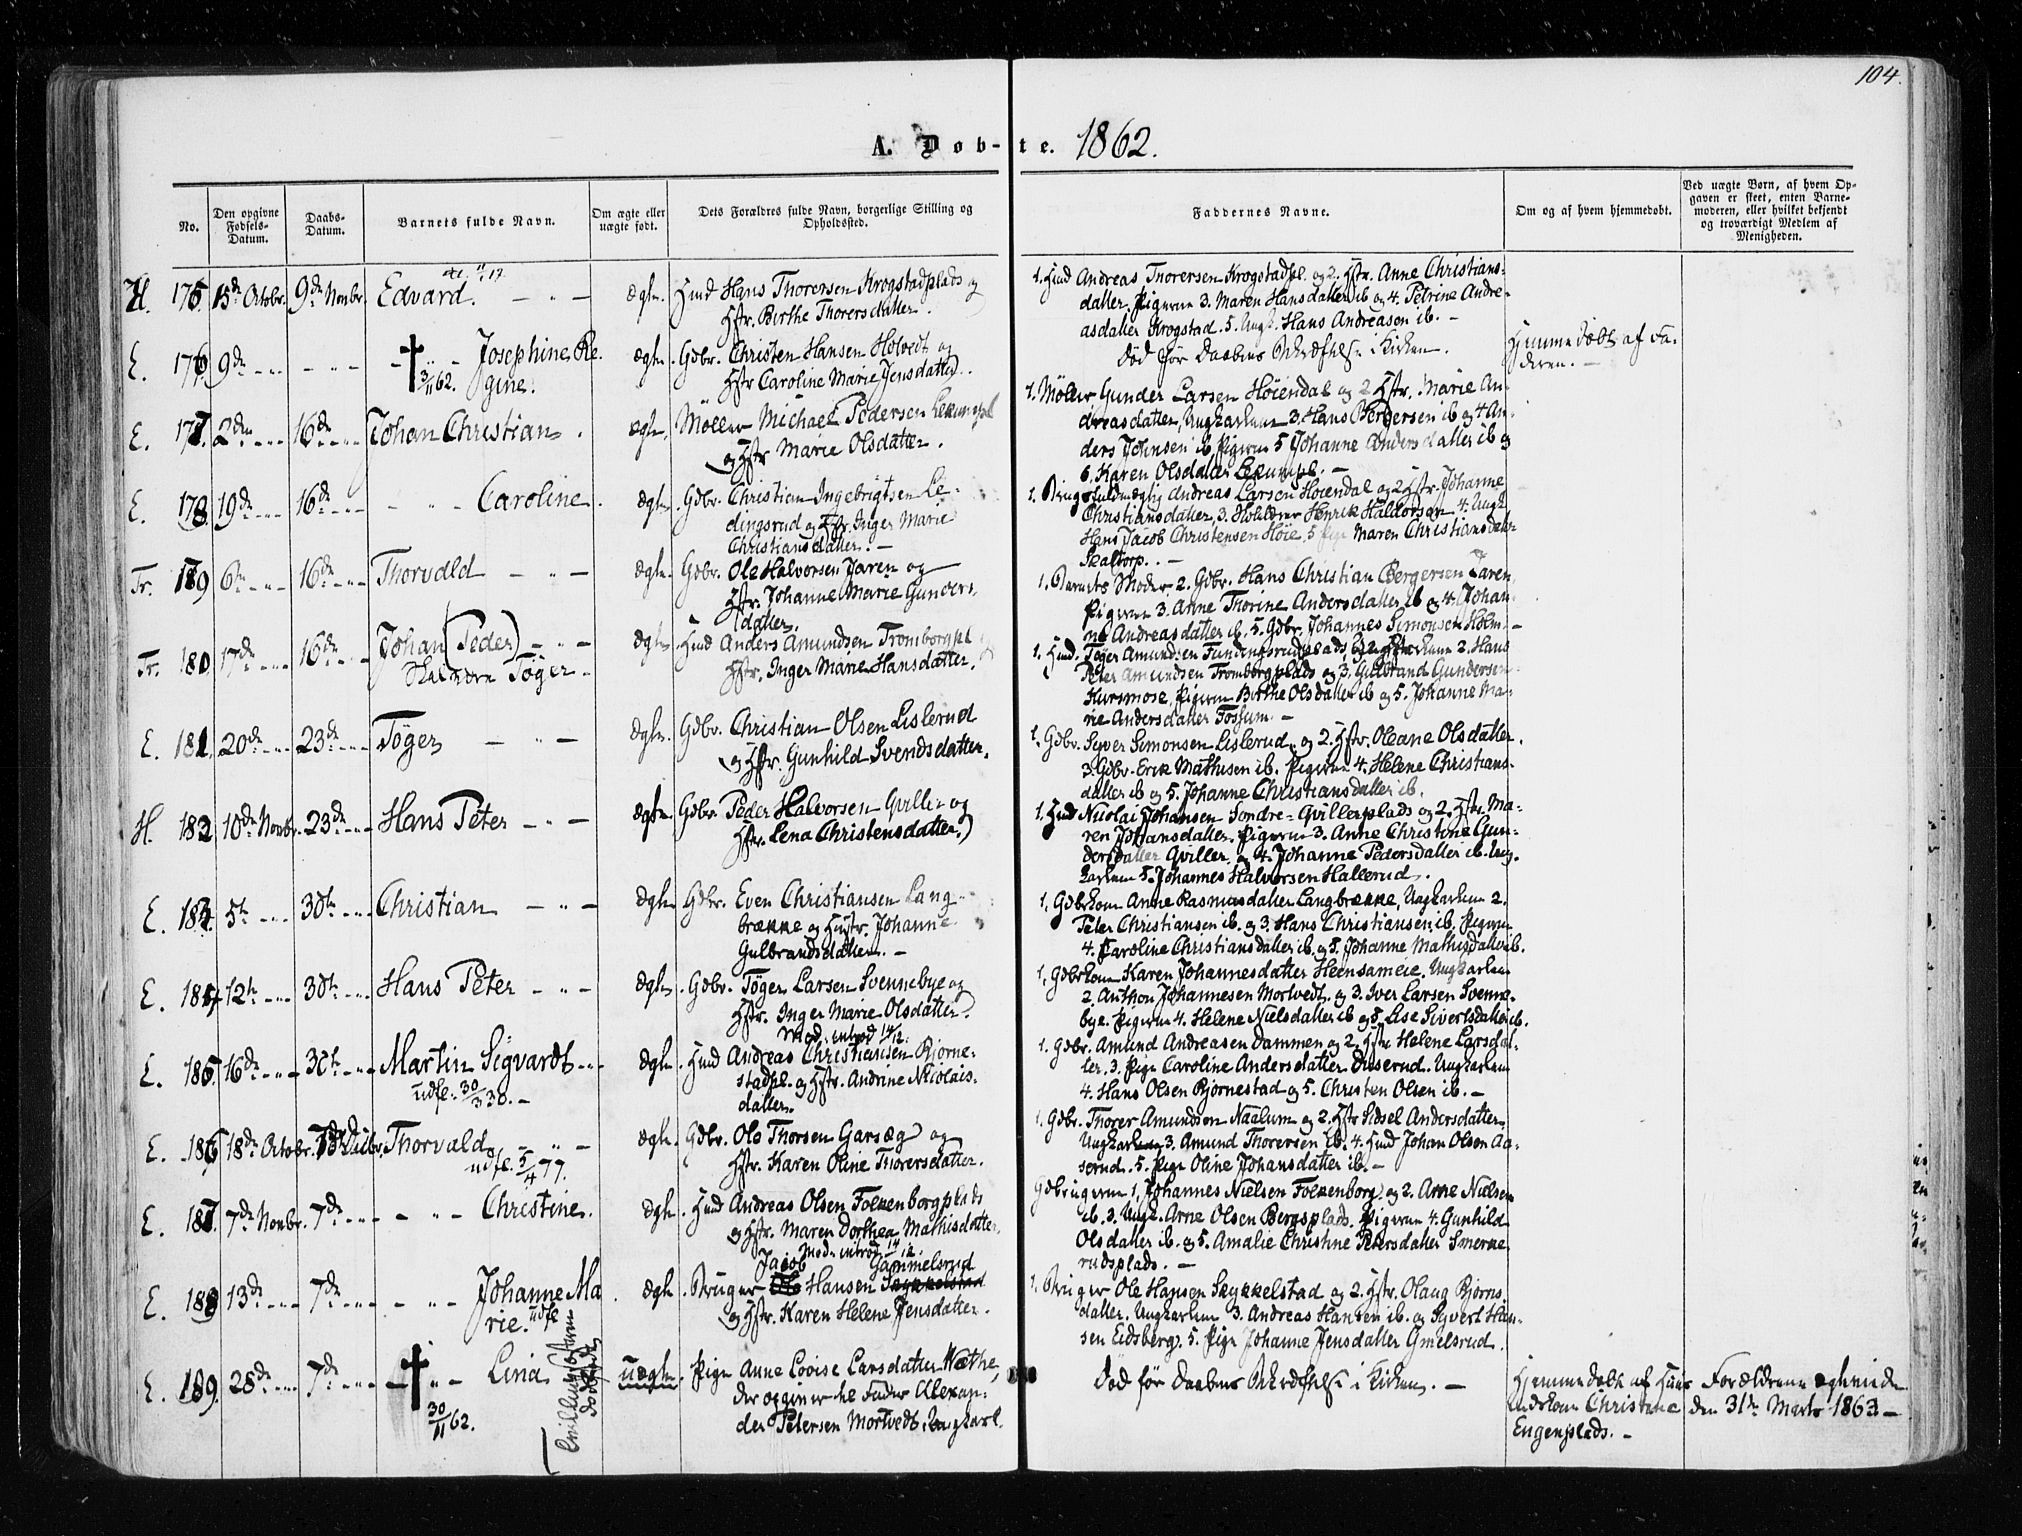 104.
A. Døb-te. 1862.
No.
Den opgivne Fødsels-Datum.
Daabs-Datum.
Barnets fulde Navn.
Om ægte eller uægte født.
Dets Forældres fulde Navn, borgerlige Stilling og Opholdssted.
Faddernes Navne.
Om og af hvem hjemmedøbt.
Ved uægte Børn, af hvem Op-
gaven er skeet, enten Barne-
moderen, eller hvilket bekjendt
og troværdigt Medlem af
Menigheden.
H. 175 15de Octobr. 9de Novbr. Edvard. Ægte. Husmd Hans Thorersen Krogstadplads og
Hstr. Birthe Thorersdatter.
1. Husmd Andreas Thorersen Krogstadpl. og 2. Hstr. Anne Christians-
datter, Pigerne 3. Maren Hansdatter ib og 4. Petrine Andre-
asdatter Krogstad. 5. Ungk. Hans Andreasen ib. -
E. 176 9de - " - - " - † 3/11 62. Josephine Re-
gine. Ægte. Gdbr. Christen Hansen Holvedt og
Hstr Caroline Marie Jensdatter.
Død før Daabens Bekræftelse i Kirken.
Hjemmedøbt af Fa-
deren. -
E. 177. 2den - " - 16de - " - Johan Christian. Ægte. Møller Michael Pedersen Lekumpl
og Hstr Marie Olsdatter.
1. Møller Gunder Larsen Høiendal og 2 Hstr. Marie An-
dreasdatter, Ungkarlene 3. Hans Bergersen ib og 4 An-
ders Johnsen ib Pigerne 5 Johanne Andersdatter ib og
6. Karen Olsdatter Lekumpl. -
E. 178. 19de - " - 16de - " - Caroline. Ægte. Gdbr. Christian Ingebrigtsen Le-
dingsrud og Hstr. Inger Marie
Christiansdatter. -
1. Brugsfuldmægtig Andreas Larsen Høiendal og 2 Hstr. Johanne
Christiansdatter, 3. Holddrer Henrik Haldorsen 4. Ungk
Hans Jacob Christensen Høie, 5 Pige Maren Christiansdatter
Skaltorp. -
Tr. 179 6te - " - 16de - " - Thorvald - " - Ægte. Gdbr. Ole Halvorsen Jaren og
Hstr. Johanne Marie Gunders-
datter.
1. Barnets Moder 2. Gdbr. Hans Christian Bergersen Jaren,
Pigerne 3. Anne Thorine Andersdatter ib og 4. Johan-
ne Andreasdatter ib. 5. Gdbr. Johannes Simonsen Holm. -
Tr. 180 17de - " - 16de - " - Johan (Peder) - " -
Töger. Ægte. Husmd Anders Amundsen Tromborgpl
Hstr. Inger Marie Hansdatter.
1. Husmd. Töger Amundsen Fundingsrudplads, 2. Hans
Peter Amundsen Tromborgplads og 3. Gulbrand Gundersen
Kursmose, Pigerne Birthe Olsdatter ib og 5. Johanne Ma-
rie Andersdatter Fossum. -
E. 181. 20de - " - 23de - " - Töger - " - Ægte. Gdbr. Christian Olsen Lislerud
og Hstr. Gunhild Svendsdatter.
1. Gdbr. Syver Simonsen Lislerud og 2. Hstr. Oleane Olsdatter.
3. Gdbr. Erik Mathisen ib. Pigerne 4. Helene Christians-
datter ib og 5. Johanne Christiansdatter ib.
H. 182 10de Novbr. 23de - " - Hans Peter - " - Ægte Gdbr Peder Halvorsen Gviller og
Hstr. Lena Christensdatter.
1. Husmd Nicolai Johansen Søndre-Gvillerplads og 2. Hstr. Ma-
ren Johansdatter. Pigerne 3. Anne Christine Gun-
dersdatter Gviller, og 4. Johanne Pedersdatter ib. Ung-
karlene 5. Johannes Halvorsen Hallerud.
E. 183. 5te - " - 30te - " - Christian - " - Ægte. Gdbr. Even Christiansen Lang-
brække og Hustr. Johanne
Gulbrandsdatter. -
1. Gdbrkone Anne Rasmusdatter Langbrække, Ungkarlene 2.
Peter Christiansen ib. og 3. Hans Christiansen ib. Pigerne
4. Caroline Christiansdatter ib. og 5. Johanne Mathisdatter ib.
E. 184. 12te - " - 30te - " - Hans Peter - " - Ægte. Gdbr. Töger Larsen Svennebye og
Hstr. Inger Marie Olsdatter.
1. Gdbrkone Karen Johannesdatter Heensameie. Ungkarlene
2. Anthon Johannesen Mortvedt. og 3. Iver Larsen Svenne-
bye. Pigerne 4. Helene Nielsdatter ib og 5. Lise Sivertsdatter ib.
E. 185. 16de - " - 30te - " - Martin Sigvardt - " -
udfl. 30/3 38. -
Ægte. Mod. introd 14/12.
Husmd Andreas Christiansen Bjørne-
stadpl. og Hstr. Andrine Nicolais-
datter.
1. Gdbr. Amund Andreasen Dammen og 2. Hstr Helene Larsdat-
ter. 3. Pige Caroline Andersdatter Diserud. Ungkarlene
4. Hans Olsen Bjørnestad og 5. Christen Olsen ib. -
E. 186 18de Octobr. 7de Decbr. Thorvald - " -
udfl. 5/4 77.
Ægte. Gdbr. Ole Thorsen Garsæg og
Hstr. Karen Oline Thorersdatter.
1. Gdbr. Thorer Amundsen Naalum og 2. Hstr Sidsel Andersdatter.
Ungkarlene 3. Amund Thorersen ib. 4. Husmd Johan Olsen Aa-
serud. 5. Pige Oline Johansdatter ib. -
E. 187. 7de Novbr. 7de - " - Christine. Ægte. Husmd Andreas Olsen Folkenborgplads
og Hstr. Maren Dorthea Mathisdatter.
Mod. introd. 14/12.
Gdbrugerne 1. Johannes Nielsen Folkenborg og 2. Arne Nielsen
ib. 3. Ungk. Arne Olsen Bergsplads. Pigerne 4. Gunhild
Olsdatter ib. og 5. Amalie Christine Petersdatter Smerke-
rudsplads. -
E. 188 13de - " - 7de - " - Johanne Ma-
rie. udfl
Ægte. Bruger Jacob Hansen Gammelsrud
og Hstr. Karen Helene Jensdatter.
1. Bruger Ole Hansen Skykkelstad og 2. Hstr. Olaug Bjørns-
datter. Ungkarlene 3. Andreas Hansen ib. og Syvert Han-
sen Eidsberg. 5. Pige Johanne Jensdatter Gmelsrud.
E. 189. 28de - " - 7de - " - † 30/11 62. Lina
Uægte. Pige Anne Lovise Larsdatter Næthe,
der opgiver til Fader Alexan-
der Petersen Mortvedt, Ungkarl.
Død før Daabens Bekræftelse i Kirken. -
Hjemmedøbt af Huus-
mandskone Christence
Engenplads. -
Forældrene ægteviede
den 31te Marts 1863. -